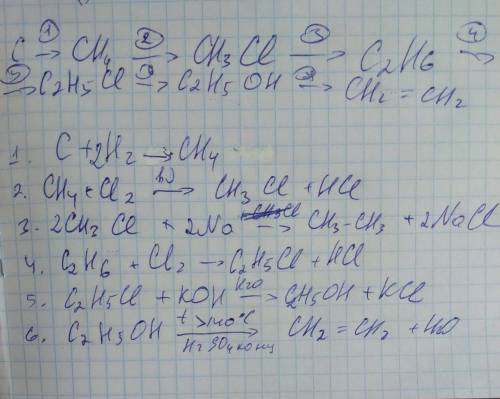 C ① → CH₄ ② → CH₃Cl ③ → C₂H₆ ④ →
→ C₂H₅Cl → C₂H₅OH → CH₂=CH₂
1. C + 2H₂ → CH₄
2. CH₄ + Cl₂ hν → CH₃Cl + HCl
3. 2CH₃Cl + 2Na → CH₃-CH₃ + 2NaCl
4. C₂H₆ + Cl₂ → C₂H₅Cl + HCl
5. C₂H₅Cl + KOH H₂O → C₂H₅OH + KCl
6. C₂H₅OH t>140°C → H₂SO₄ конц CH₂=CH₂ + H₂O